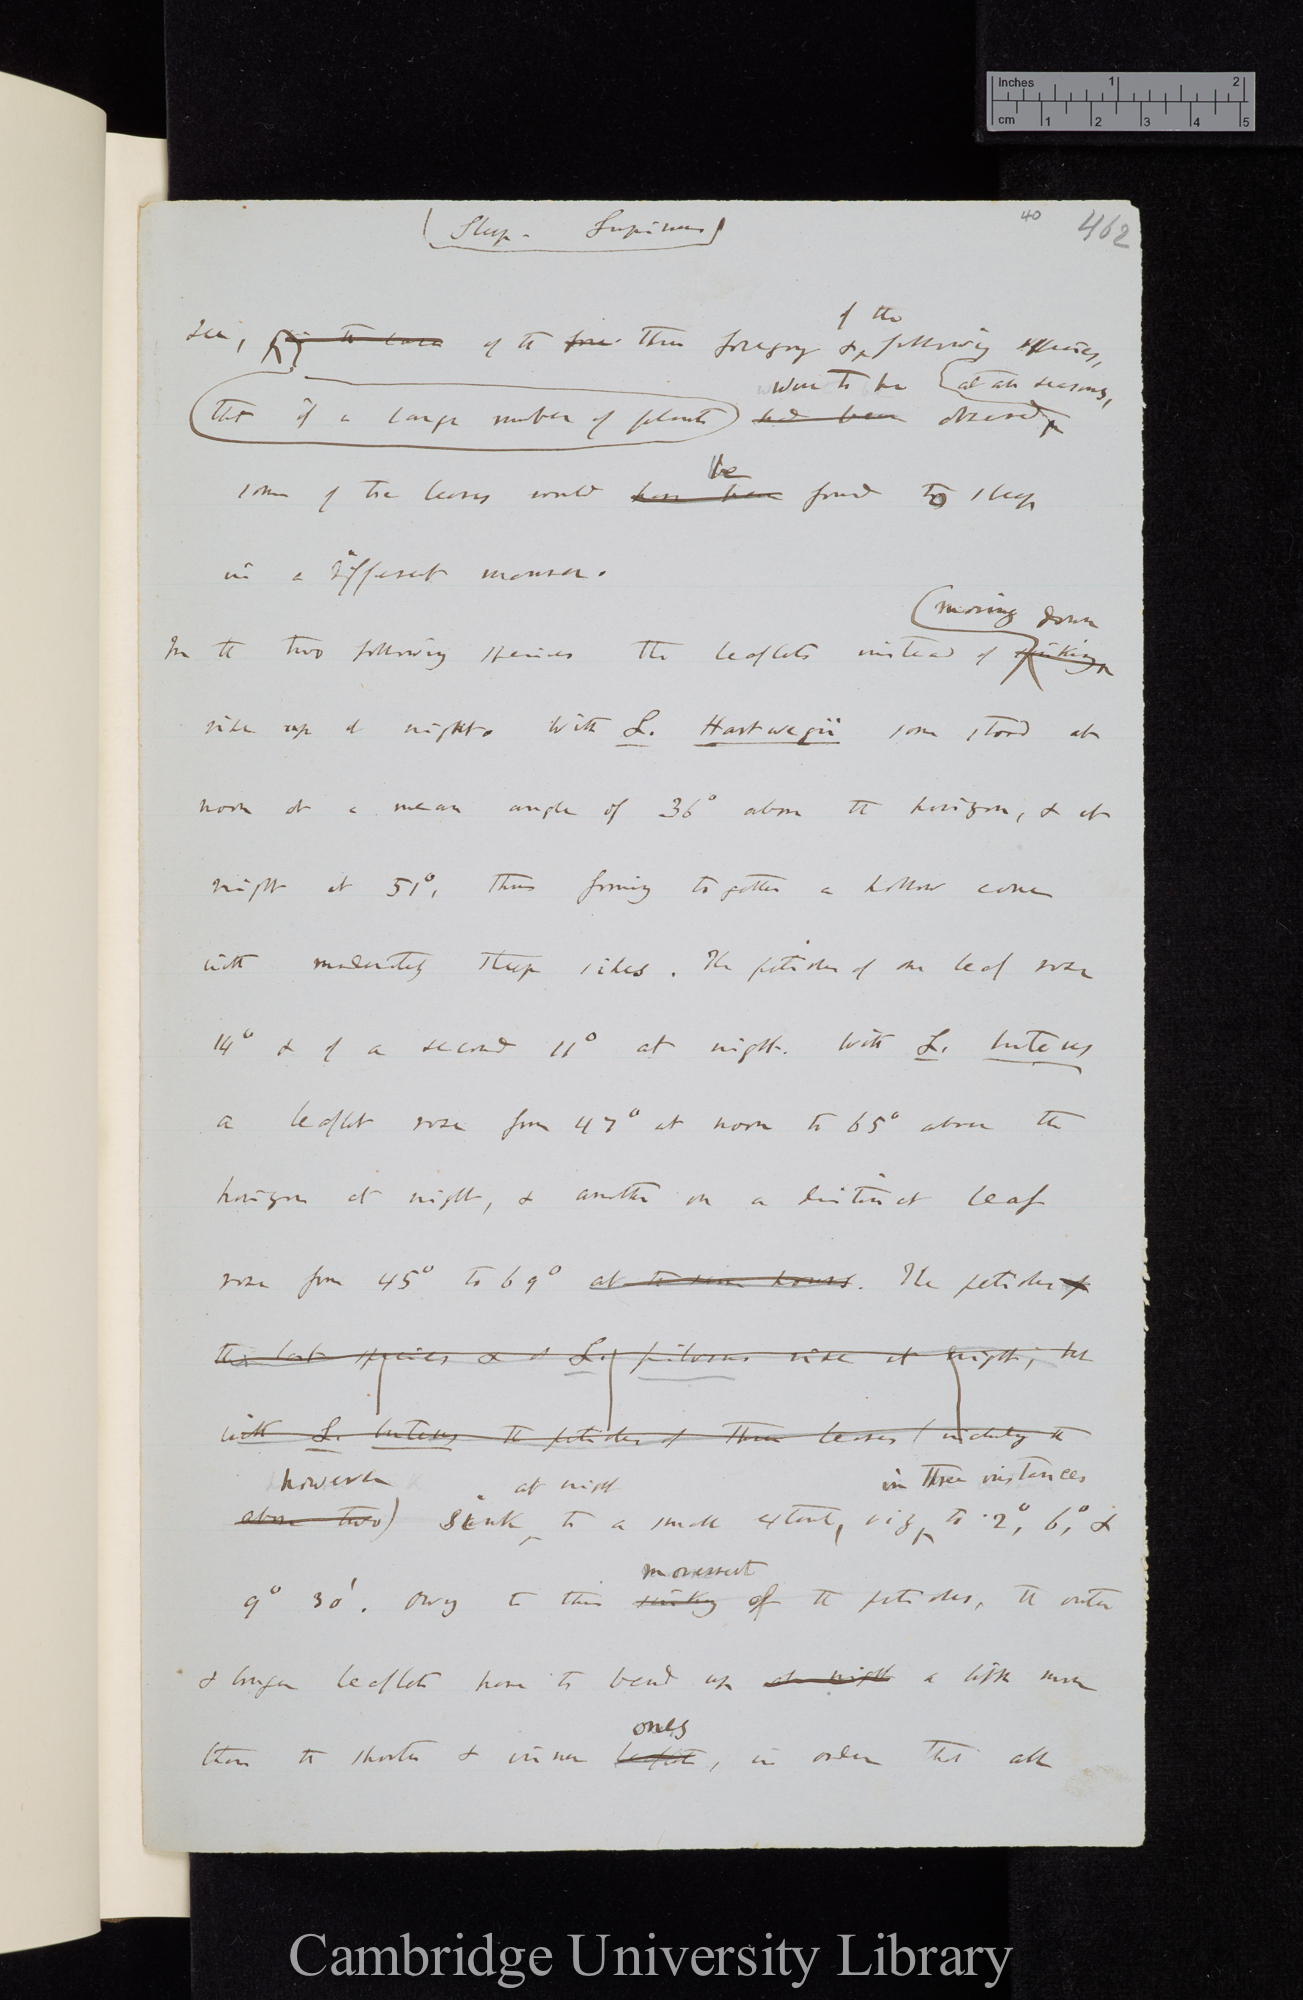 Inches 1 2
cm 1 2 3 4 5
(Sleep - Lupinus)
40 462
of the
of the three foregoing & following species,
were to be (at all seasons,
that if a large number of plants had been observed
be
some of the leaves would have been found to sleep
in a different manner.
(moving down
In the two following species the leaflets instead of sinking
rise up at night. With L. Hartwegii some stood at
noon at a mean angle of 36° above the horizon, & at
night at 51°, thus forming together a hollow cone
with moderately steep sides. The petiole of one leaf rose
14° & of a second 11° at night. With L. luteus
a leaflet rose from 47° at noon to 65° above the
horizon at night, & another on a distinct leaf
rose from 45° to 69° at the same hours. The petioles
this last species & of L. pilosus rise at night, but
with L. luteus the petioles of three leaves (including the
however at night in three instances
above two) sink to a small extent, viz, to 2°, 6°, &
movement
9° 30'. Owing to this sinking of the petioles, the outer
& longer leaflets have to bend up at night a little more
ones
than the shorter & inner leaflets, in order that all
Cambridge University Library